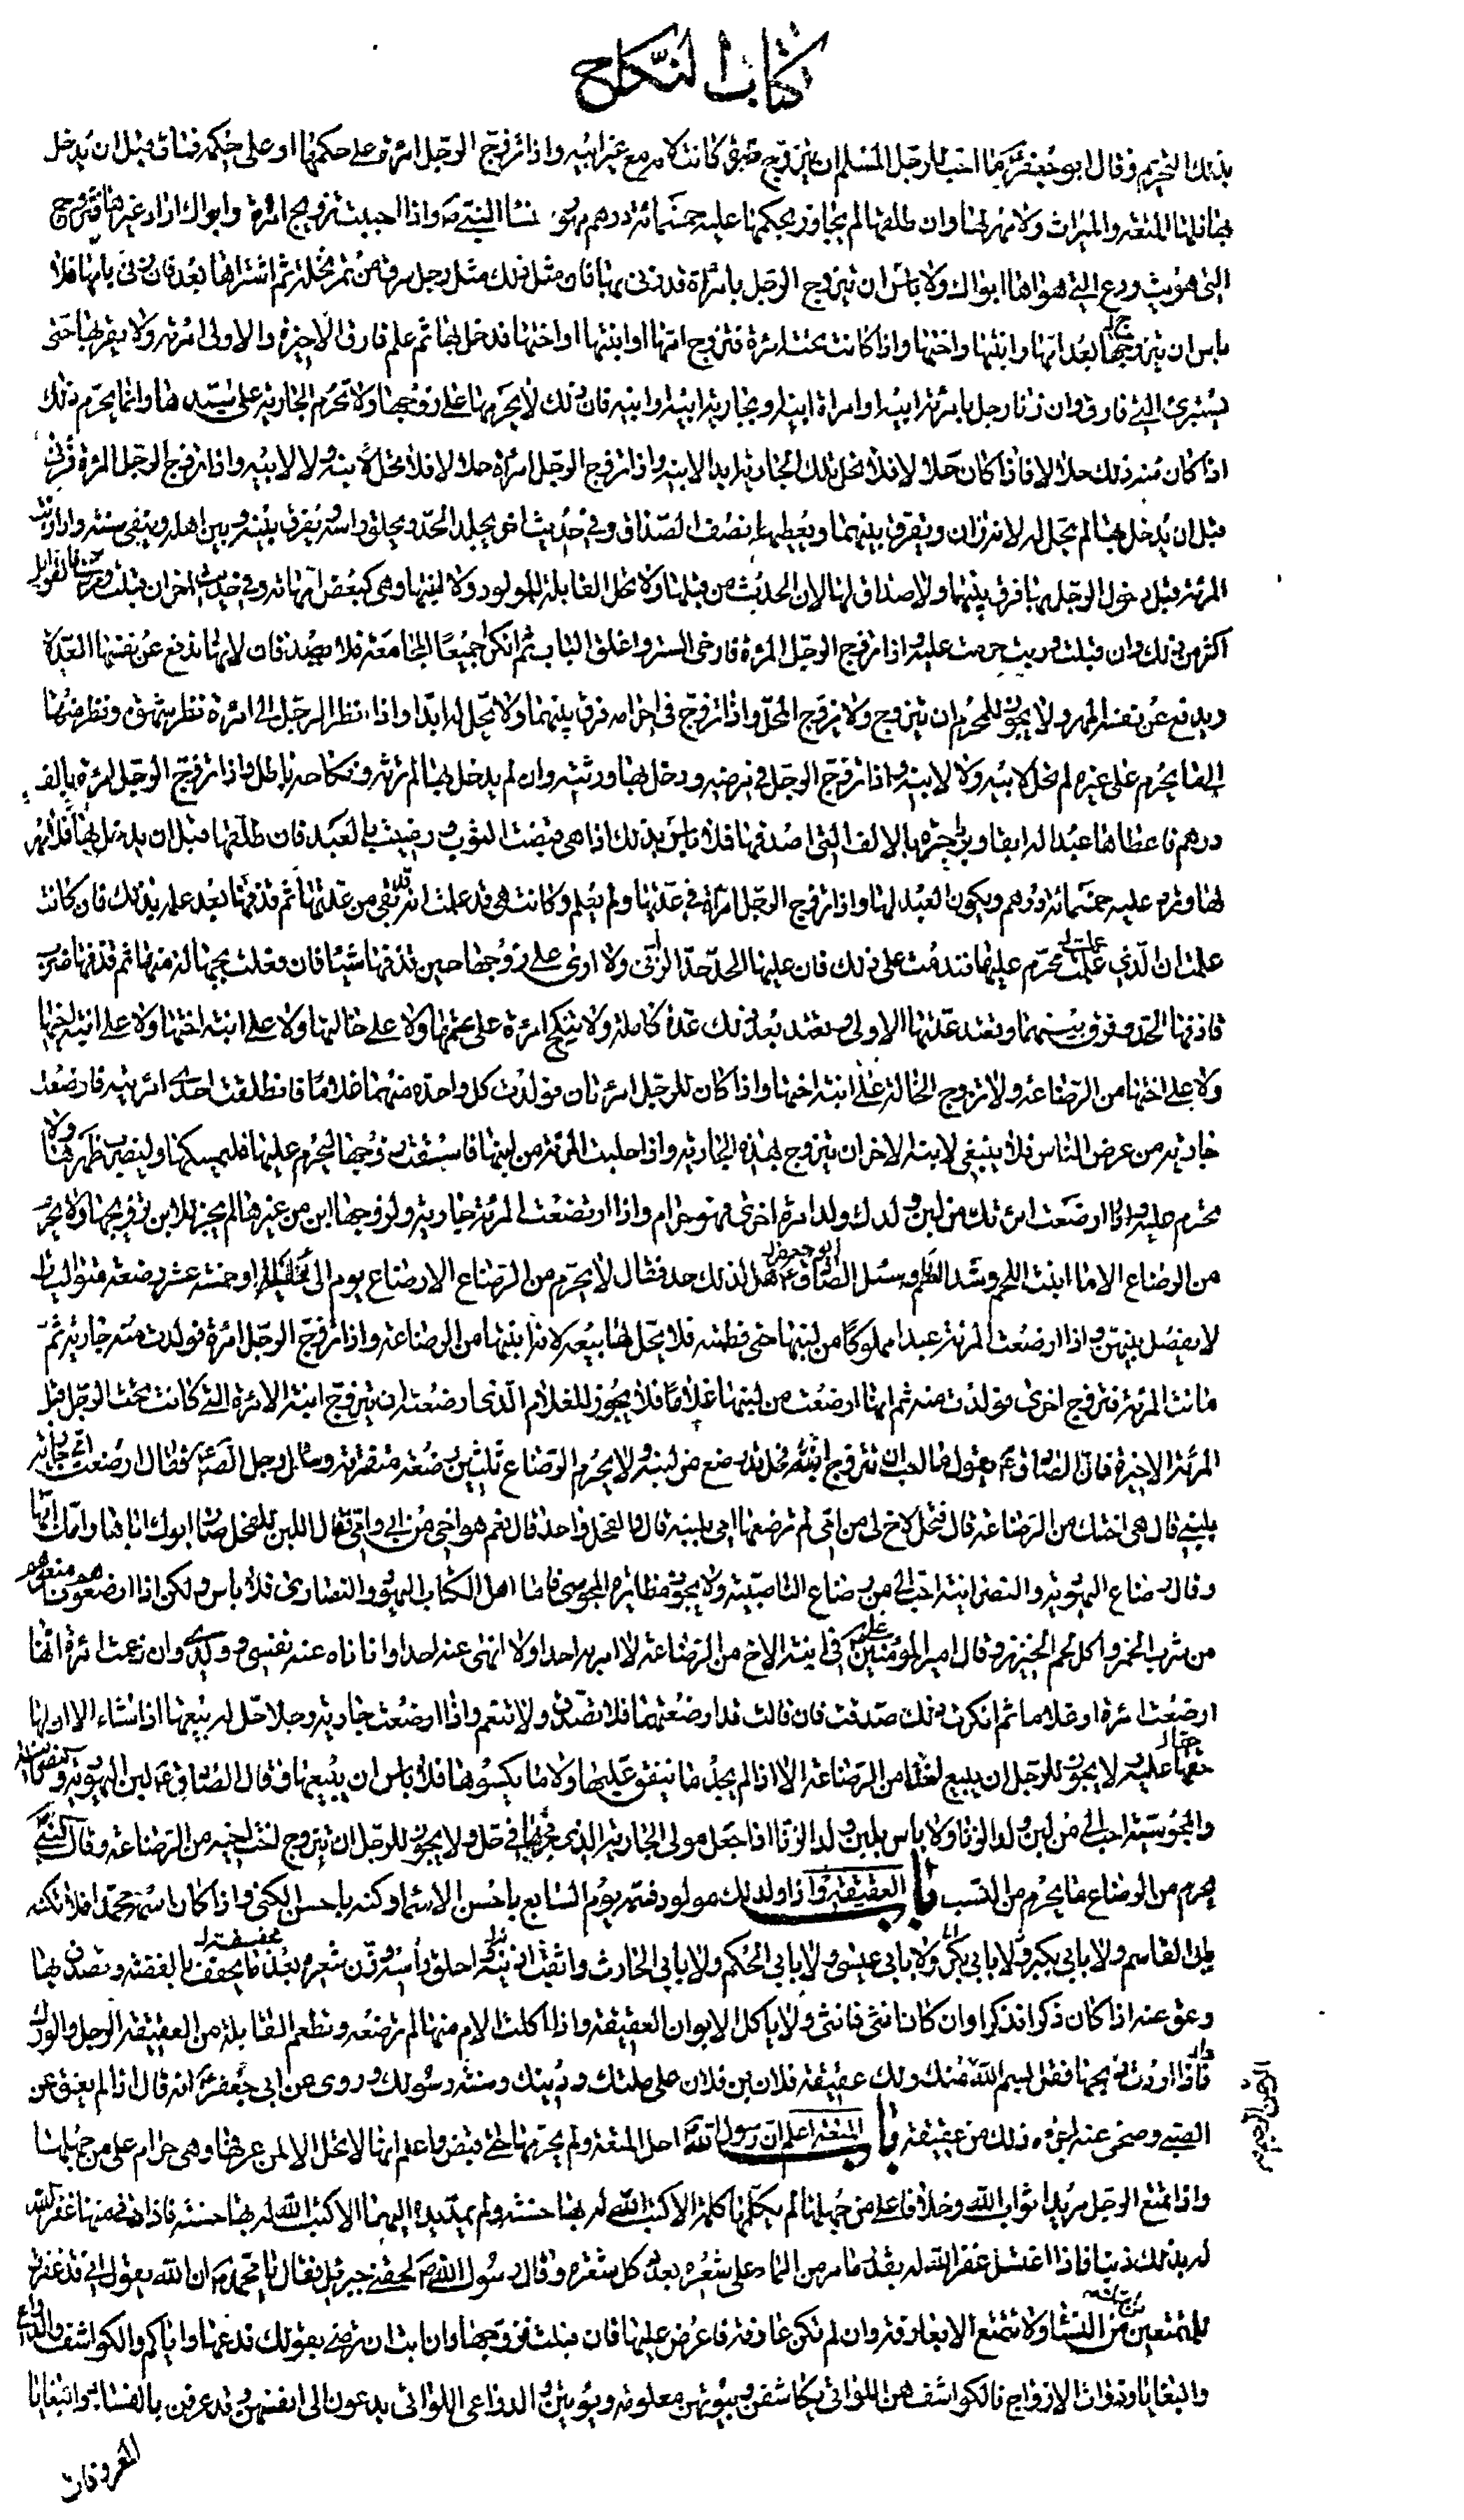 كتاب النكاح
بذلك التحريم وقال ابو جعفر ع ما احب للرجل المسلم ان يتزوج ضرة كانت لامه مع غير ابيه واذا تزوج الرجل امرءة على حكمها او على حكمه فمات قبل ان يدخل
بها فلها المتعة والميراث ولا مهر لها وان طلقها لم يتجاوز بحكمها عليه خمسمائة درهم مهور نساء النبي ص واذا احببت تزويج امرءة وابواك ارادا غيرها فتزوج
التي هويت ودع التي هواها ابواك ولا باس ان يتزوج الرجل بامرأة قد زنى بها فان مثل ذلك مثل رجل سرق من تمر نخلة ثم اشتراها بعد فان زنى بامها فلا
باس ان يتزوجها بعد امها وابنتها واختها واذا كانت تحته امرءة فتزوج امها او ابنتها او اختها فدخل بها ثم علم فارق الاخيرة والاولى امرءته ولا يقربها حتى
يستبرئ التي فارق وان زنا رجل بامرءة ابيه او امراة ابنه او بجارية ابيه او ابنه فان ذلك لا يحرمها على زوجها ولا تحرم الجارية على سيدها وانما يحرم ذلك
اذا كان منه ذلك حلالا فاذا كان حلالا فلا تحل تلك الجارية ابدا لابنه واذا تزوج الرجل امرأة حلالا فلا تحل لابنه ولا لابيه واذا تزوج الرجل المرءة فزنى
قبل ان يدخل بها لم تحل له لانه زان ويفرق بينهما ويعطيها نصف الصداق وفي حديث اخر يجلد الحد ويحلق راسه ويفرق بينه وبين اهله وينفى سنة واذا زنت
المرءة قبل دخول الرجل بها فرق بينهما ولا صداق لها لان الحدث من قبلها ولا تحل القابلة للمولود ولا لابنها وهي كبعض امهاته وفي حديث اخر ان قبلت ومرت فالقوابل
اكثر من ذلك وان قبلت وربت حرمت عليه واذا تزوج الرجل المرءة فارخى الستر واغلق الباب ثم انكرا جميعا المجامعة فلا يصدقان لانها تدفع عن نفسها العدة
ويدفع عن نفسه المهر ولا يجوز للمحرم ان يتزوج ولا يزوج المحل واذا تزوج في احرامه فرق بينهما ولا تحل له ابدا واذا نظر الرجل الى امرءة نظر شهوة ونظر منها
الى ما يحرم على غيره لم تحل لابيه ولا لابنه واذا تزوج الرجل في مرضه ودخل بها ورثته وان لم يدخل بها لم ترثه ونكاحه باطل واذا تزوج الرجل امرءة بالف
درهم فاعطاها عبدا له ابقا وبرد حبرة بالالف التي اصدقها فلا باس بذلك اذا هي قبضت الثوب ورضيت بالعبد فان طلقها قبل ان يدخل بها فلا مهر
لها وترد عليه خمسمائة درهم ويكون العبد لها واذا تزوج الرجل امرأة في عدتها ولم يعلم وكانت هي قد علمت انه بقي من عدتها ثم قذفها بعد علمه بذلك فان كانت
علمت ان الذي عملت محرم عليها فقدمت على ذلك فان عليها الحد حد الزنى ولا ارى على زوجها حين قذفها شيئا فان فعلت بجهالة منها ثم قذفها ضرب
قاذفها الحد وفرق بينهما وتعتد عدتها الاولى وتعتد بعد ذلك عدة كاملة ولا ينكح امرءة على عمتها ولا على خالتها ولا على ابنة اختها ولا على ابنة اخيها
ولا على اختها من الرضاعة ولا تزوج الخالة على ابنة اختها واذا كان للرجل امرءتان فولدت كل واحدة منهما غلاما فانطلقت احدى امرءتيه فارضعت
جارية من عرض الناس فلا ينبغي لابنه الاخر ان يتزوج بهذه الجارية واذا حلبت المرءة من لبنها فاسقت زوجها ليحرم عليها فليمسكها وليضرب ظهرها ولا
تحرم عليه واذا ارضعت امرءتك من لبن ولدك ولد امرءة اخرى فهو حرام واذا ارضعت المرءة جارية ولزوجها ابن من غيرها لم يجز للابن تزويجها ولا يحرم
من الرضاع الا ما انبت اللحم وشد العظم وسئل الصادق ع هل لذلك حد فقال لا يحرم من الرضاع الا رضاع يوم الى ليلة او خمسة عشر رضعة متواليات
لا يفصل بينهن واذا ارضعت المرءة عبدا مملوكا من لبنها حتى فطمته فلا يحل لها بيعه لانه ابنها من الرضاعة واذا تزوج الرجل امرءة فولدت منه جارية ثم
ماتت المرءة فتزوج اخرى فولدت منه ثم انها ارضعت من لبنها غلاما فلا يجوز للغلام الذي ارضعت ان يتزوج ابنة الامرءة التي كانت تحت الرجل قبل
المرءة الاخيرة فان الصادق ع يقول ما احب ان تتزوج ابنة فحل قد رضع من لبنه ولا يحرم الرضاع ثلثين رضعة متفرقة وسال رجل الصادق ع فقال ارضعت امي جارية
بلبني قال هي اختك من الرضاعة قال فتحل لاخ لي من امي لم ترضعها امي بلبنه قال والفحل واحد قال نعم هو اخي من ابي وامي قال اللبن للفحل صار ابوك اباها وامك امها
وقال رضاع اليهودية والنصرانية احب الي من رضاع الناصبية ولا يجوز مظائرة المجوسي فاما اهل الكتاب اليهود والنصارى فلا باس ولكن اذا ارضعوهم منعوهم
من شرب الخمر واكل لحم الخنزير وقال امير المؤمنين ع في ابنة الاخ من الرضاعة لا امر به احدا ولا انهى عنه احدا وانا ناه عنه نفسي وولدي وان زعمت امرءة انها
ارضعت امرءة او غلاما ثم انكرت ذلك صدقت فان قالت قد ارضعتهما فلا تصدق ولا تنعم واذا ارضعت جارية رجلا حل له بيعها اذا شاء الا ان لها
حقا عليه لا يجوز للرجل ان يبيع اخته من الرضاعة الا اذا لم يجد ما ينفق عليها ولا ما يكسوها فلا باس ان يبيعها وقال الصادق ع لبن اليهودية والنصرانية
والمجوسية احب الي من لبن ولد الزنا ولا باس بلبن ولد الزنا اذا جعل مولى الجارية الذي فجر بها في حل ولا يجوز للرجل ان يتزوج اخت اخيه من الرضاعة وقال النبي ص
يحرم من الرضاع ما يحرم من النسب باب العقيقة واذا ولد لك مولود فسمه يوم السابع باحسن الاسماء وكنه باحسن الكنى واذا كان اسمه محمدا فلا تكنه
بابي القاسم ولا بابي بكير ولا بابي بكر ولا بابي عيسى ولا بابي الحكم ولا بابي الحارث واثقب اذنيه احلق راسه وزن شعره بعد ما يجفف بالفضة وتصدق بها
وعق عنه اذا كان ذكرا فذكرا وان كان انثى فانثى ولا ياكل الابوان العقيقة واذا اكلت الام منها لم ترضعه وتطعم القابلة من العقيقة الرجل والورك
فاذا اردت ذبحها فقل بسم الله منك ولك عقيقة فلان بن فلان على ملتك ودينك وسنة رسولك وروى عن ابي جعفر ع انه قال اذا لم يعق عن
الصبي وضحى عنه اجزءه ذلك من عقيقته باب المتعة اعلم ان رسول الله ص احل المتعة ولم يحرمها حتى قبض واعلم انها لا تحل الا لمن عرفها وهي حرام على من جهلها
واذا تمتع الرجل مريدا ثواب الله وخلافا على من جهلها لم يكلمها كلمة الا كتب الله له بها حسنة ولم يمد يده اليها الا كتب الله له بها حسنة فاذا دنى منها غفر الله
له بذلك ذنبا فاذا اغتسل غفر الله له بقدر ما مر من الماء على شعره بعدد كل شعرة وقال رسول الله ص لحقني جبرئيل فقال يا محمد ص ان الله يقول اني قد غفرت
للمتمتعين من النساء ولا تتمتع الا بعارفة وان لم تكن عارفة فاعرض عليها فان قبلت فزوجها وان ابت ان ترضى بقولك فدعها واياكم والكواشف والدواعي
والبغايا وذوات الازواج فالكواشف هن اللواتي يكاشفن وبيوتهن معلومة ويؤتين والدواعي اللواتي يدعون الى انفسهن وقد عرفن بالفساد والبغايا
المعروفات